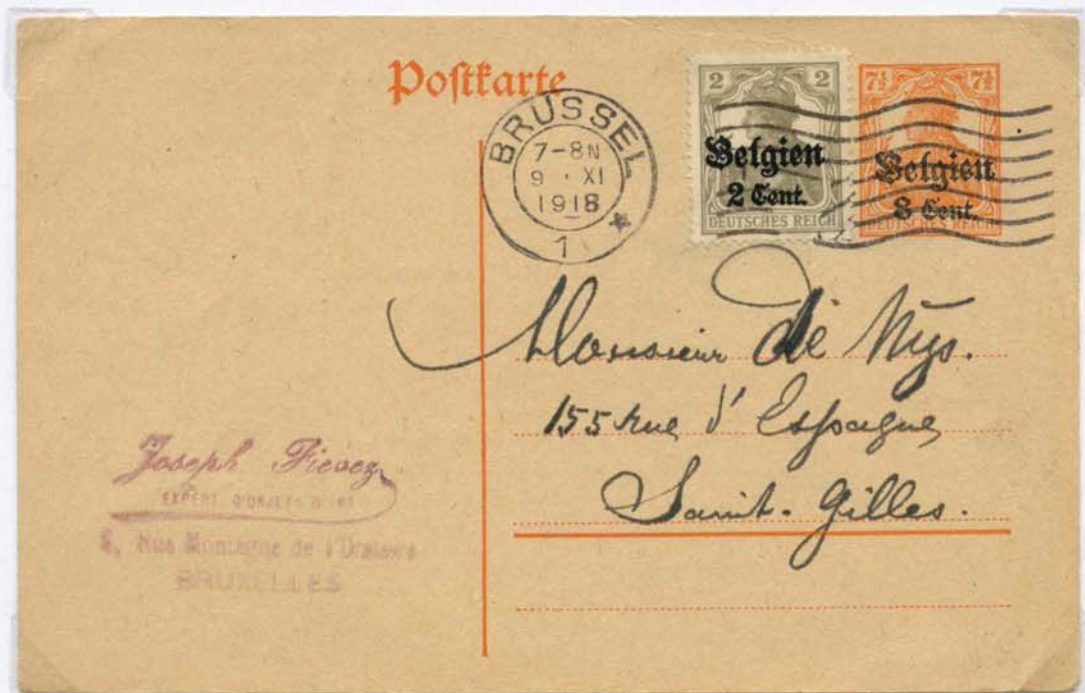 Postkarte
2 2
Belgien
2 Cent.
DEUTSCHES REICH
7½ 7½
Belgien
8 Cent.
DEUTSCHES REICH
BRÜSSEL
7-8N
9 · XI
1918
1 *
Monsieur de Nys.
155 rue d'Espagne
Saint-Gilles.
Joseph Fievez
EXPERT D'OBJETS D'ART
Rue Montagne de l'Oratoire
BRUXELLES